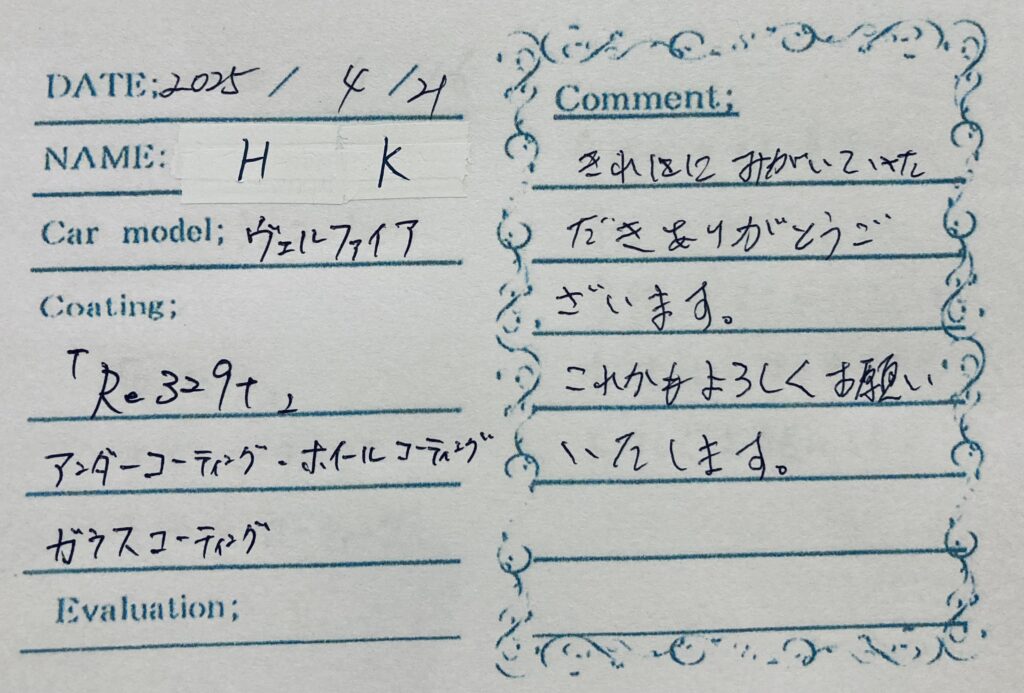 DATE; 2025 / 4 / 21
NAME: H K
Car model; ヴェルファイア
Coating;
「Re329+」
アンダーコーティング・ホイールコーティング
ガラスコーティング
Evaluation;
Comment;
きれいにみがいていた
だきありがとうご
ざいます。
これからもよろしくお願い
いたします。